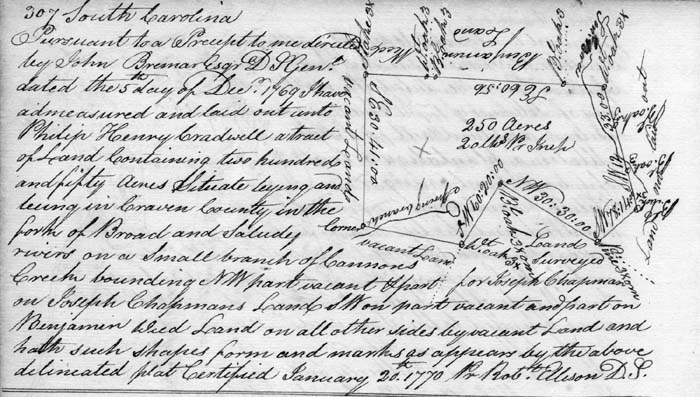 307 South Carolina
Pursuant to a Precept to me directed
by John Bremar Esqr D. S. Genl.
dated the 5th day of Decr. 1769 I have
admeasured and laid out unto
Philip Henry Cradwell a tract
of Land Containing two hundred
and fifty Acres Situate lying and
being in Craven County in the
fork of Broad and Saludy
rivers on a Small branch of Cannons
Creek bounding NW part vacant & part
on Joseph Chapmans Land SW on part vacant and part on
Benjamin Wied Land on all other sides by vacant Land and
hath such shapes form and marks as appears by the above
delineated plat Certified January 20th. 1770 Pr Robt. Elleson D. S.
Benjamin
Land
Bl oak 3x
vacant Lands
250 Acres
20 Chs Pr Inch
Spring branch
Corner
vacant Land
NW 30:30.00
Land
Surveyed
for Joseph Chapman
Land laid out